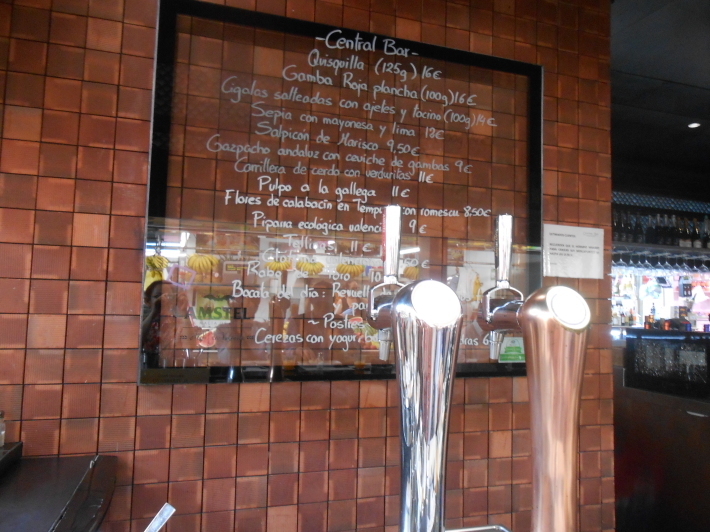 -Central Bar-
Quisquilla (125g) 16€
Gamba Roja plancha (100g) 16€
Cigalas salteadas con ajetes y tocino (100g) 14€
Sepia con mayonesa y lima 12€
Salpicón de Marisco 9,50€
Gazpacho andaluz con ceviche de gambas 9€
Carrillera de cerdo con verduritas 11€
Pulpo a la gallega 11€
Flores de calabacín en Tempura con romescu 8,50€
Piparra ecológica 9€
Tellinas 11€
50€
Rabo de Toro 10
Bocata del día:
~ Postres
Cerezas con yogur 6
AMSTEL